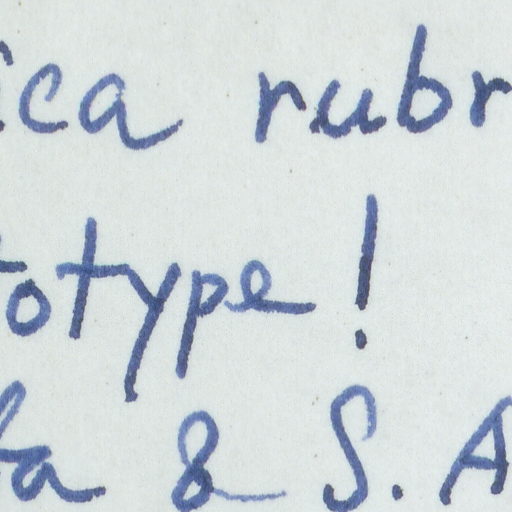 ica rubr
totype!
ta & S. A